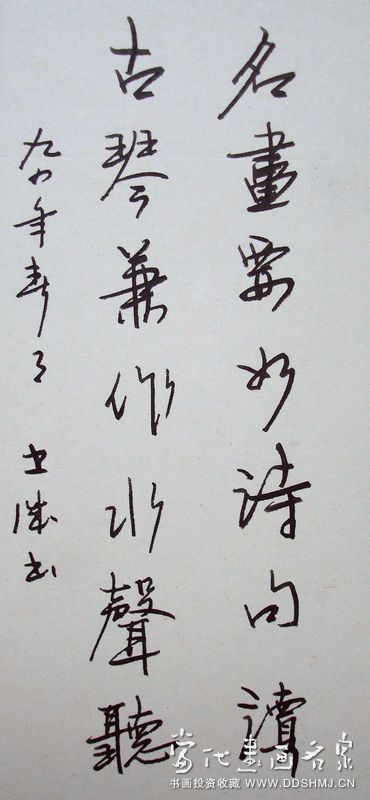 名畫要如詩句讀
古琴兼作水聲聽
九四年春月 士誠书
当代書画名家
书画投资收藏 WWW.DDSHMJ.CN